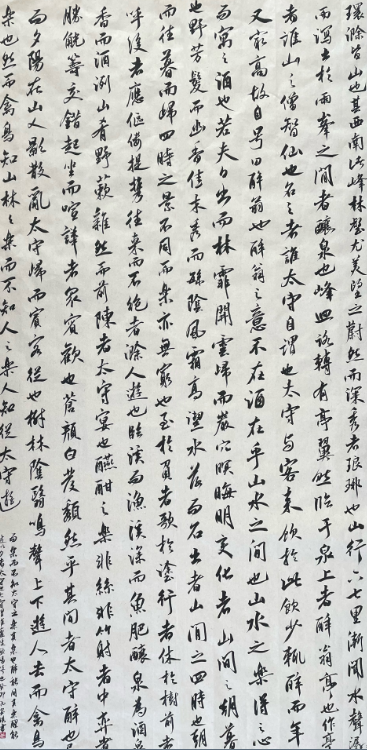 環滁皆山也其西南諸峰林壑尤美望之蔚然而深秀者琅琊也山行六七里漸聞水聲潺
而瀉出於兩峰之間者釀泉也峰回路轉有亭翼然臨于泉上者醉翁亭也作亭
者誰山之僧智仙也名之者誰太守自謂也太守與客來飲於此飲少輒醉而年
又最高故自號曰醉翁也醉翁之意不在酒在乎山水之間也山水之樂得之心
而寓之酒也若夫日出而林霏開雲歸而巖穴暝晦明變化者山間之朝暮
也野芳發而幽香佳木秀而繁陰風霜高潔水落而石出者山間之四時也朝
而往暮而歸四時之景不同而樂亦無窮也至於負者歌於塗行者休於樹前者
呼後者應傴僂提攜往來而不絕者滁人遊也臨溪而漁溪深而魚肥釀泉為酒泉
香而酒洌山肴野蔌雜然而前陳者太守宴也宴酣之樂非絲非竹射者中弈者
勝觥籌交錯起坐而諠譁者眾賓歡也蒼顏白髮頹然乎其間者太守醉也
而夕陽在山人影散亂太守歸而賓客從也樹林陰翳鳴聲上下遊人去而禽鳥
樂也然而禽鳥知山林之樂而不知人之樂人知從太守遊
而樂而不知太守之樂其樂也醉能同其樂醒能